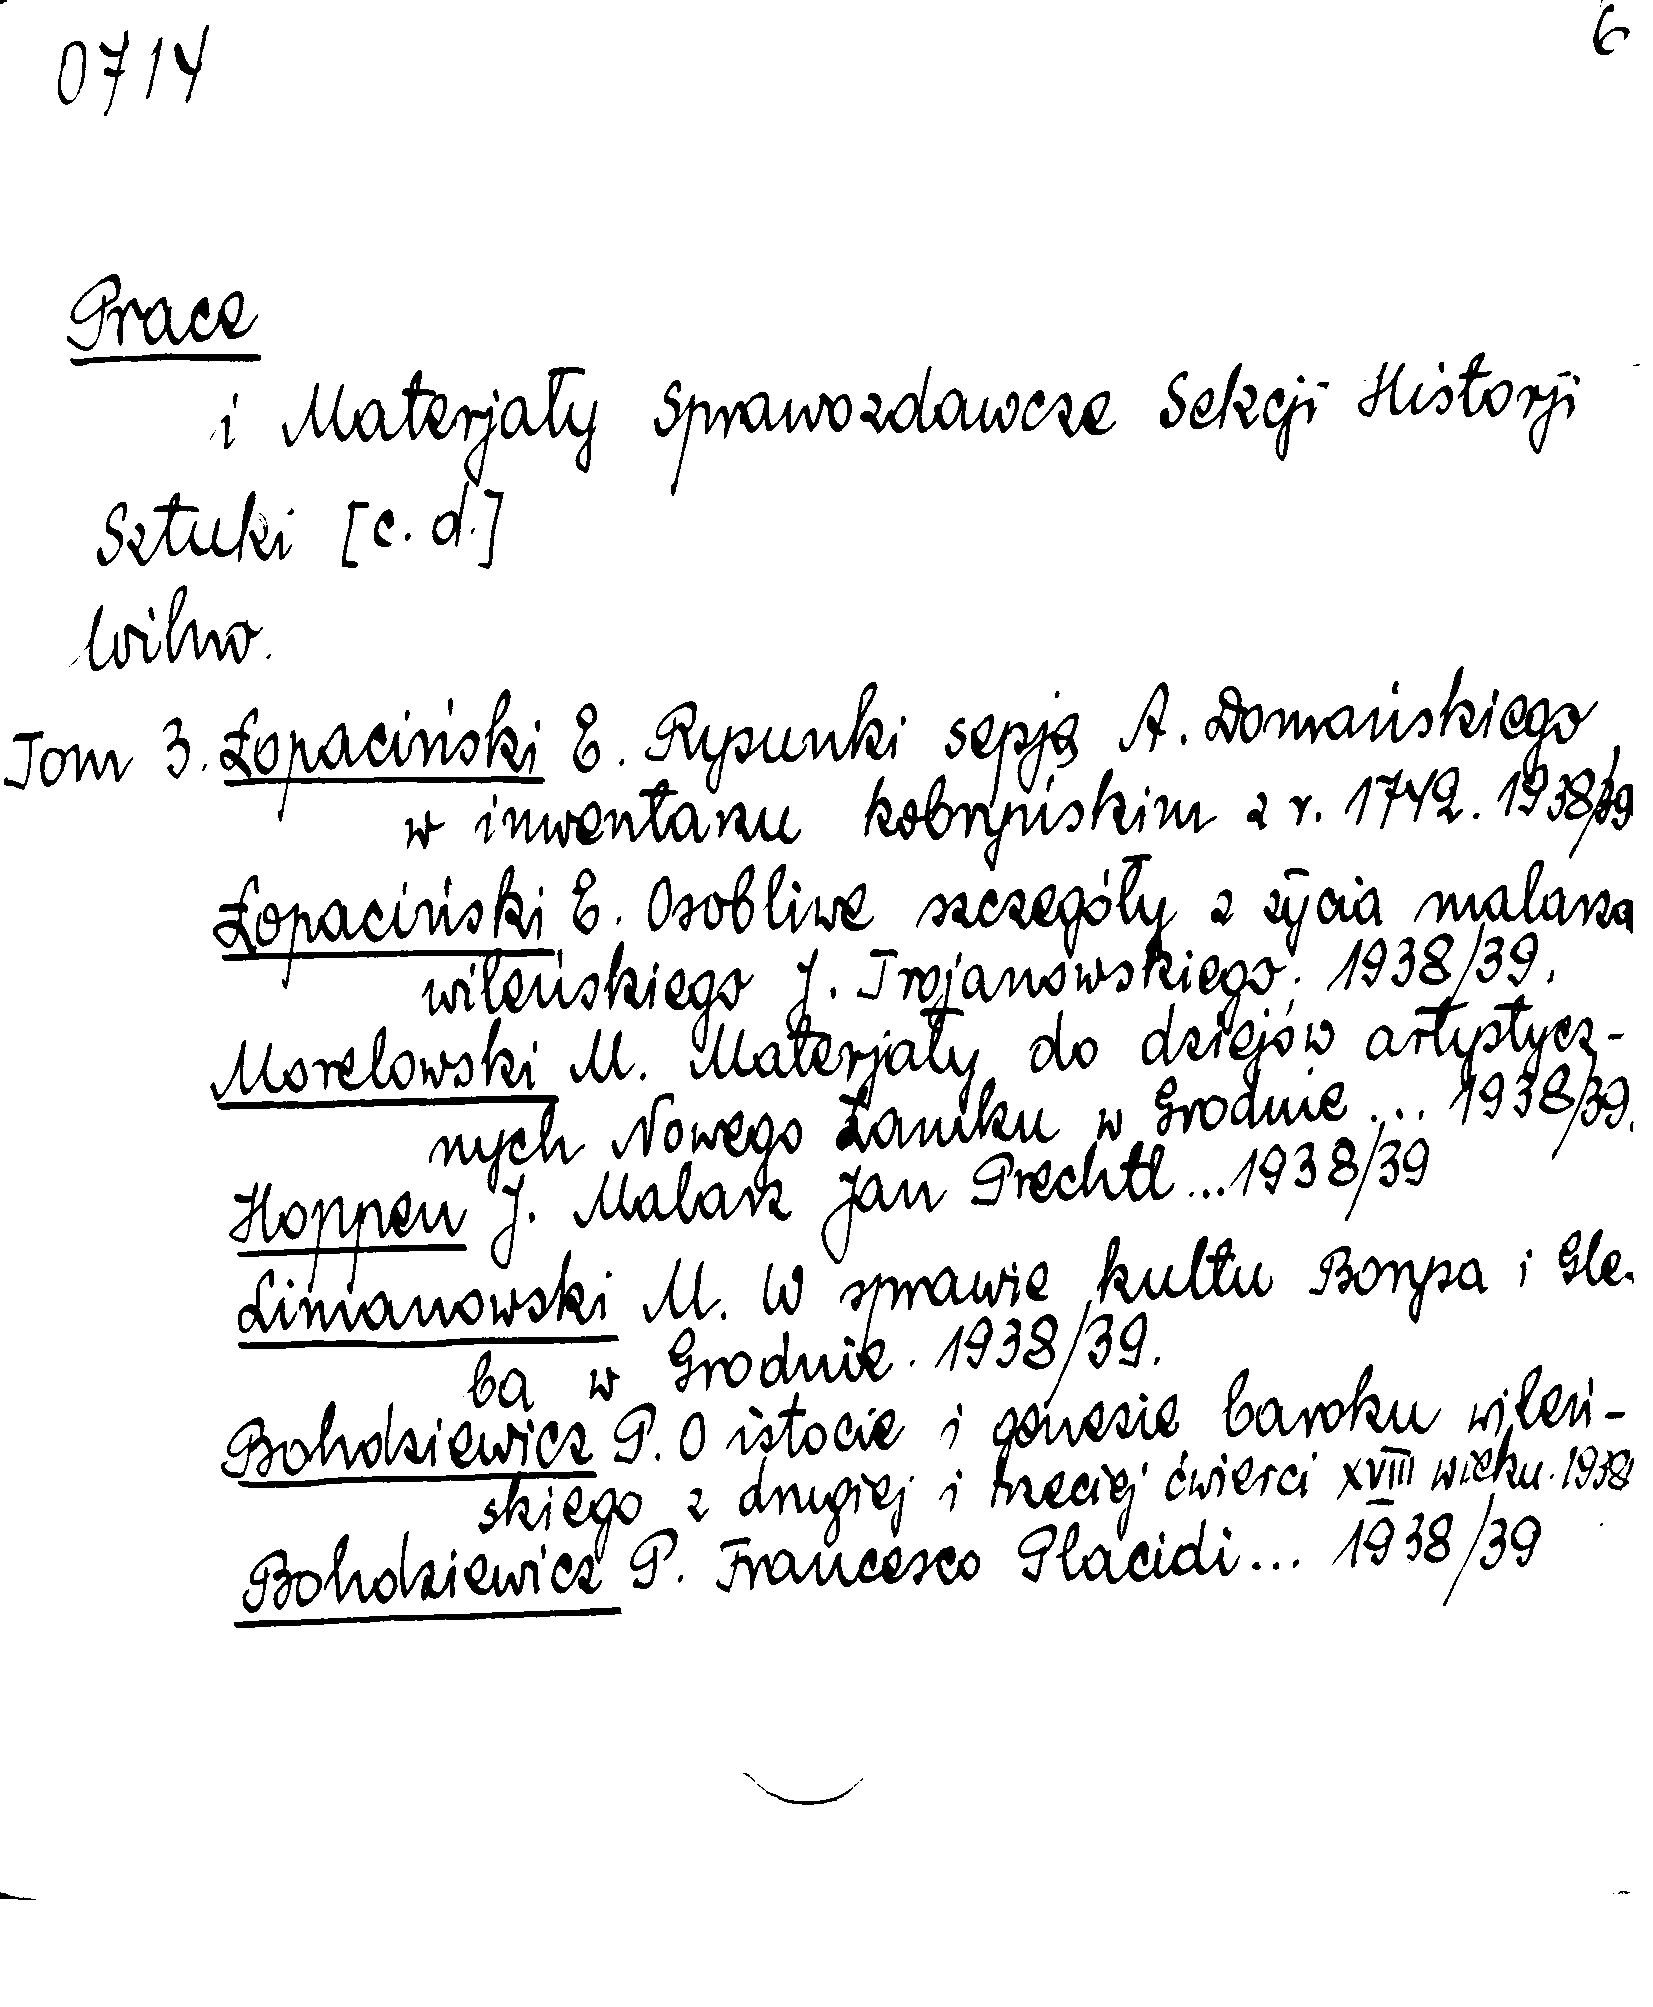 0714
6
Prace
i Materjały Sprawozdawcze Sekcji Historji
Sztuki [c. d.]
Wilno.
Tom 3. Łopaciński E. Rysunki sepją A. Domańskiego
w inwentarzu kobryńskim z r. 1742. 1938/39
Łopaciński E. Osobliwe szczegóły z życia malarza
wileńskiego J. Trojanowskiego. 1938/39.
Morelowski M. Materjały do dziejów artystycz-
nych Nowego Zamku w Grodnie ... 1938/39.
Hoppen J. Malarz Jan Prechtl ... 1938/39
Limanowski M. W sprawie kultu Borysa i Gle-
ba w Grodnie. 1938/39.
Bohdziewicz P. O istocie i genezie baroku wileń-
skiego z drugiej i trzeciej ćwierci XVIII wieku. 1938
Bohdziewicz P. Francesco Placidi ... 1938/39